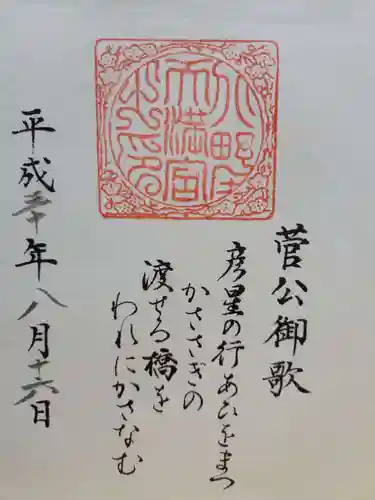 菅公御歌
彦星の行あひをまつ
かささぎの
渡せる橋を
われにかさなむ
平成三十年八月十六日
北野
天満宮
之印